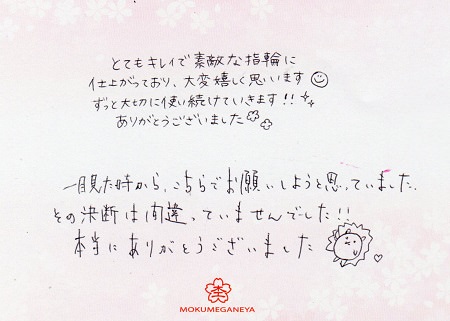 とてもキレイで素敵な指輪に
仕上がっており、大変嬉しく思います
ずっと大切に使い続けていきます!!
ありがとうございました
一目見た時から、こちらでお願いしようと思っていました。
その決断は間違っていませんでした!!
本当にありがとうございました
MOKUMEGANEYA